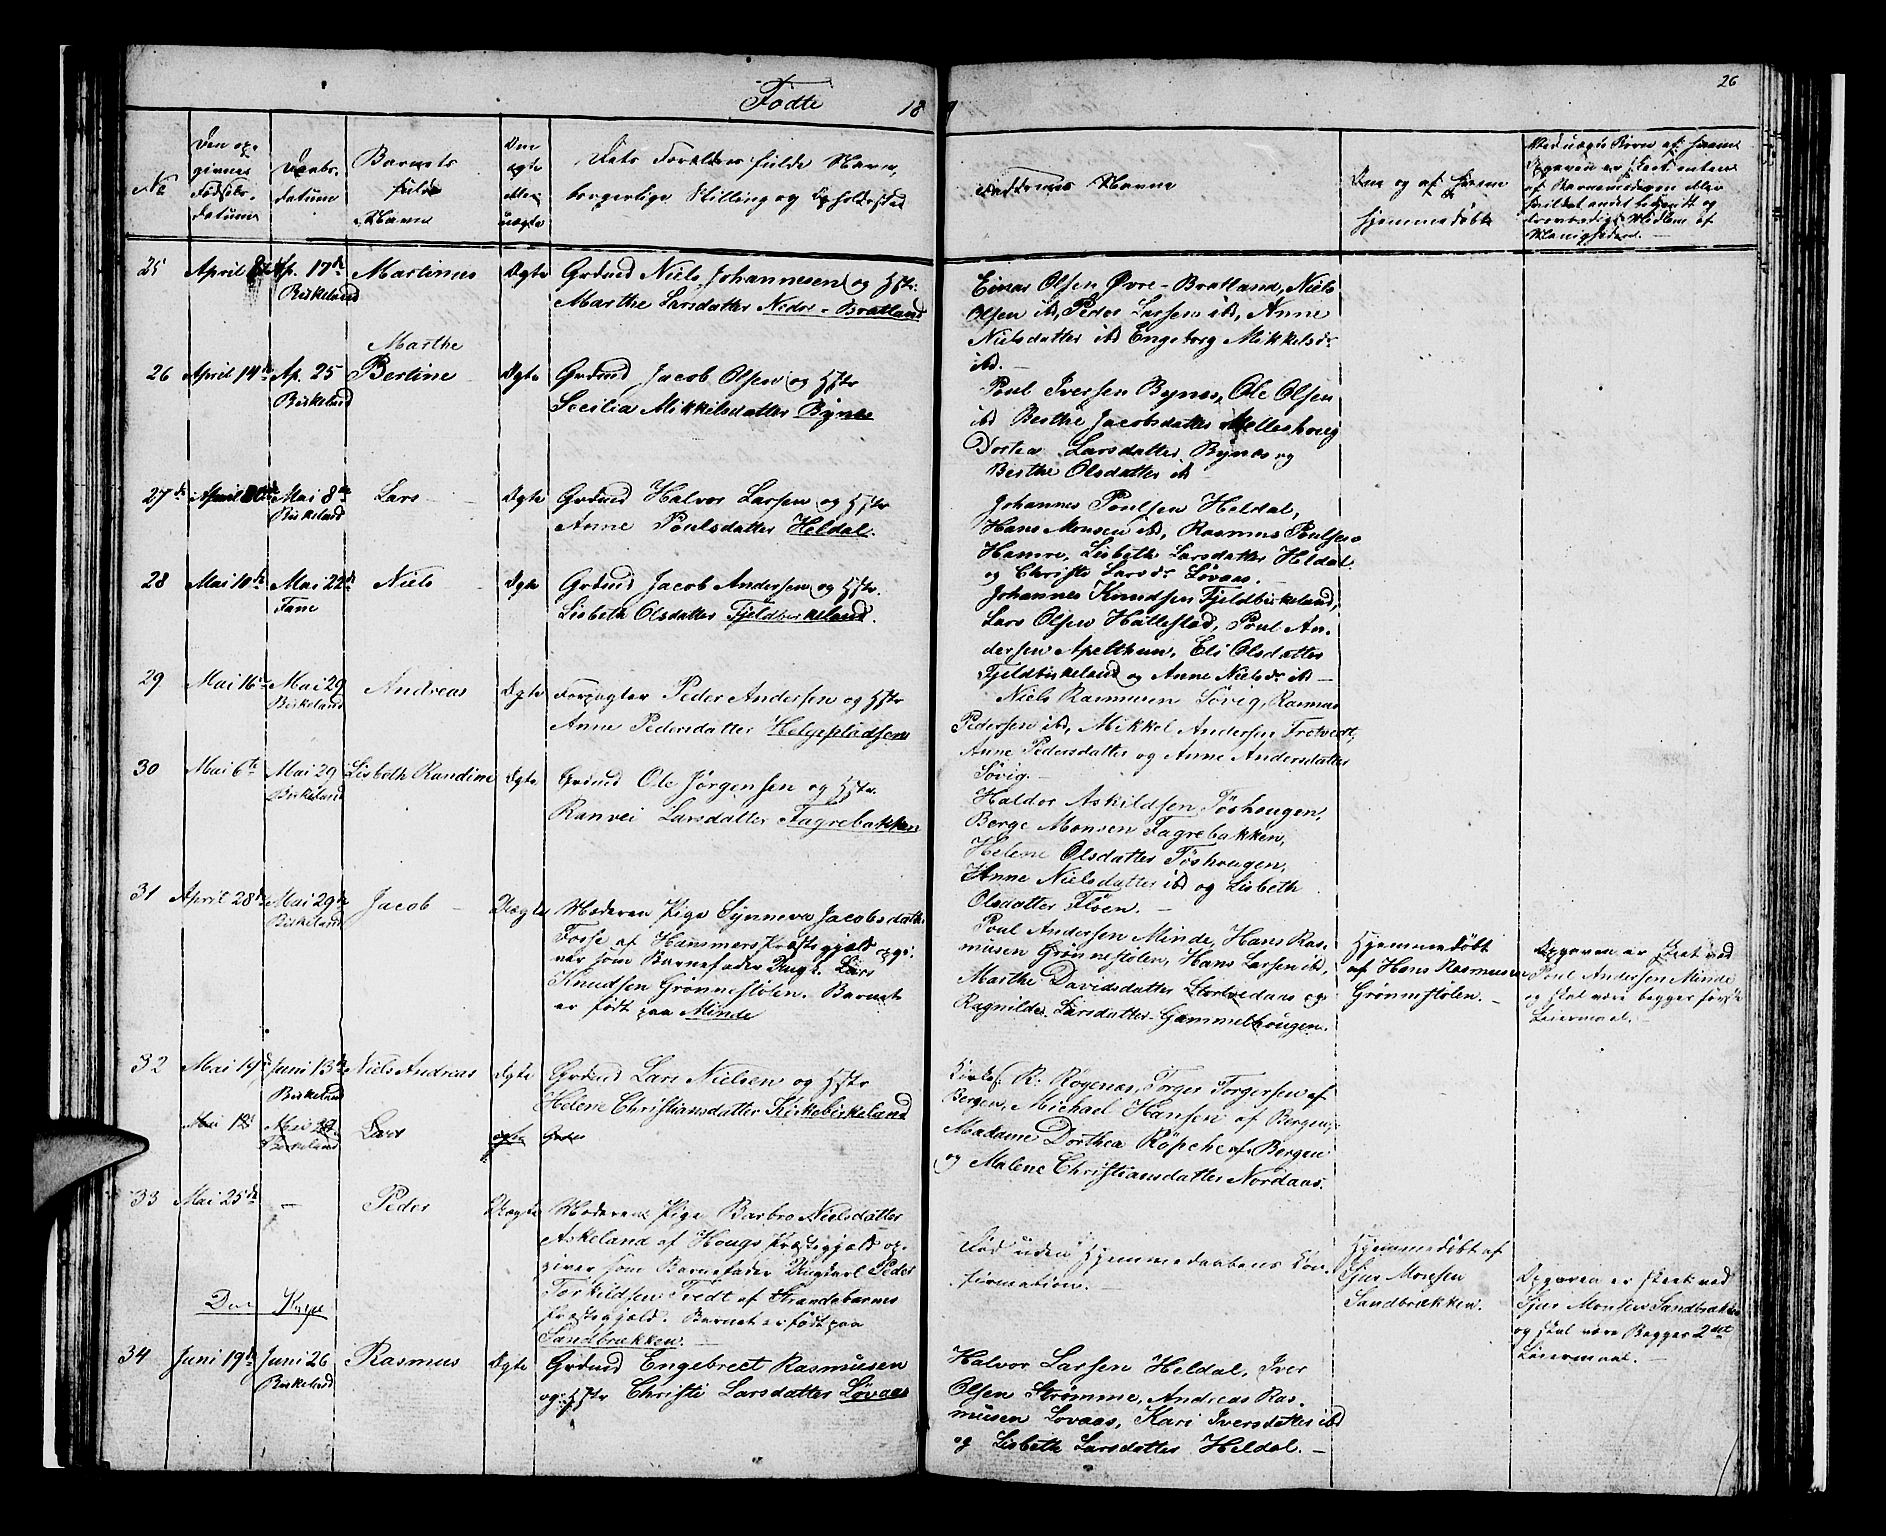 Fødte
18
26
No
Den op-
givnes
Fødsels-
datum
Daabs-
datum
Barnets
fulde
Navn
Om
ægte
eller
uægte
Dets Forældres fulde Navn,
borgerlige Stilling og Opholdssted
Faddernes Navne
Om og af hvem
hjemmedøbt
25
April
Ap. 17de
Birkeland
Martinus
Ægte
Grdmd Niels Johannesen og Hstr:
Marthe Larsdatter Nedre-Bratland
Einar Olsen Øvre-Bratland, Niels
Olsen ibd, Peder Larsen ibd, Anne
Nielsdatter ibd Engeborg Mikkelsdr
ibd.
26
April 14de
Ap. 25
Birkeland
Marthe
Bertine
Ægte
Grdmd Jacob Olsen og Hstr
Secilia Mikkelsdatter Bynes
Poul Iversen Bynæs, Ole Olsen
ibd Berthe Jacobsdatter Mellerhoug
Dortea Larsdatter Bynæs og
Berthe Olsdatter ibd
27de
April 30te
Mai 8de
Birkeland
Lars
Ægte
Grdmd Halvor Larsen og Hstr
Anne Poulsdatter Heldal.
Johannes Poulsen Heldal,
Hans Monsen ibd, Rasmus Poulsen
Hamre, Lisbeth Larsdatter Heldal
og Christi Larsdr Løvaas.
28
Mai 10de
Mai 22de
Fane
Niels
Ægte
Grdmd Jacob Andersen og Hstr.
Lisbeth Olsdatter Fjeldbirkeland.
Johannes Knudsen Fjeldbirkeland,
Lars Olsen Hattestad, Poul An-
dersen Apelthun, Eli Olsdatter
Fjeldbirkeland og Anne Nielsdr ibd
29
Mai 16de
Mai 29
Birkeland
Andreas
Ægte
Forpagter Peder Andersen og Hstr
Anne Pedersdatter Helgeplodsen
Niels Rasmusen Søvig, Rasmus
Pedersen ibd, Mikkel Andersen Tretvedt,
Anne Pedersdatter og Anne Andersdatter
Søvig.
30
Mai 6te
Mai 29
Birkeland
Lisbeth Randine
Ægte
Grdmd Ole Jørgensen og Hstr.
Ranvei Larsdatter Fagrebakken
Haldor Askildsen Toshougen,
Berge Monsen Fagrebakken,
Helene Olsdatter Toshougen,
Anne Nielsdatter ibd og Lisbeth
Olsdatter Fløen.
31
April 28de
Mai 29de
Birkeland
Jacob
Uægte
Moderen Pige Synneva Jacobsdatter
Fosse af Præstegjæld opgi-
ver som Barnefader Ungk. Lars
Knudsen Grønnestølen. Barnet
er født paa Minde
Poul Andersen Minde, Hans Ras-
musen Grønnestølen, Hans Larsen ibd,
Marthe Davidsdatter Stortvedaas og
Ragnilde Larsdatter Gammelhougen.
Hjemmedøbt
af Hans Rasmusen
Grønnestølen.
Opgaven er skeet ved
Poul Andersen Minde
og skal være begges første
Leiermaal.
32
Mai 19de
Juni 13de
Birkeland
Niels Andreas
Ægte
Grdmd Lars Nielsen og Hstr
Helene Christiansdatter Kirkebirkeland
R. Røgenæs, Torger Torgersen af
Bergen, Michael Hansen af Bergen,
Madame Dorthea Röpcke af Bergen
og Malene Christiansdatter Nordaas.
Mai
Mai
Birkeland
Lars
ægte
33
Mai 25de
Peder
Uægte
Moderen Pige Barbro Nielsdatter
Askeland af Hougs Præstegjæld op-
giver som Barnefader Ungkarl Peder
Torkildsen Tvedt af Strandebarms
Præstegjæld. Barnet er født paa
Sandbrækken.
Død uden Hjemmedaabens Con-
firmation.
Hjemmedøbt af
Sjur Monsen
Sandbrækken.
Opgaven er skeet ved
Sjur Monsen Sandbrækken
og skal være Begges 2det
Leiermaal.
34
Juni 19de
Juni 26
Birkeland
Rasmus
Ægte
Grdmd Engebrect Rasmusen
og Hstr Christi Larsdatter Løvaas
Halvor Larsen Heldal, Iver
Olsen Strømme, Andreas Ras-
musen Løvaas, Kari Iversdatter ibd
og Lisbeth Larsdatter Heldal.